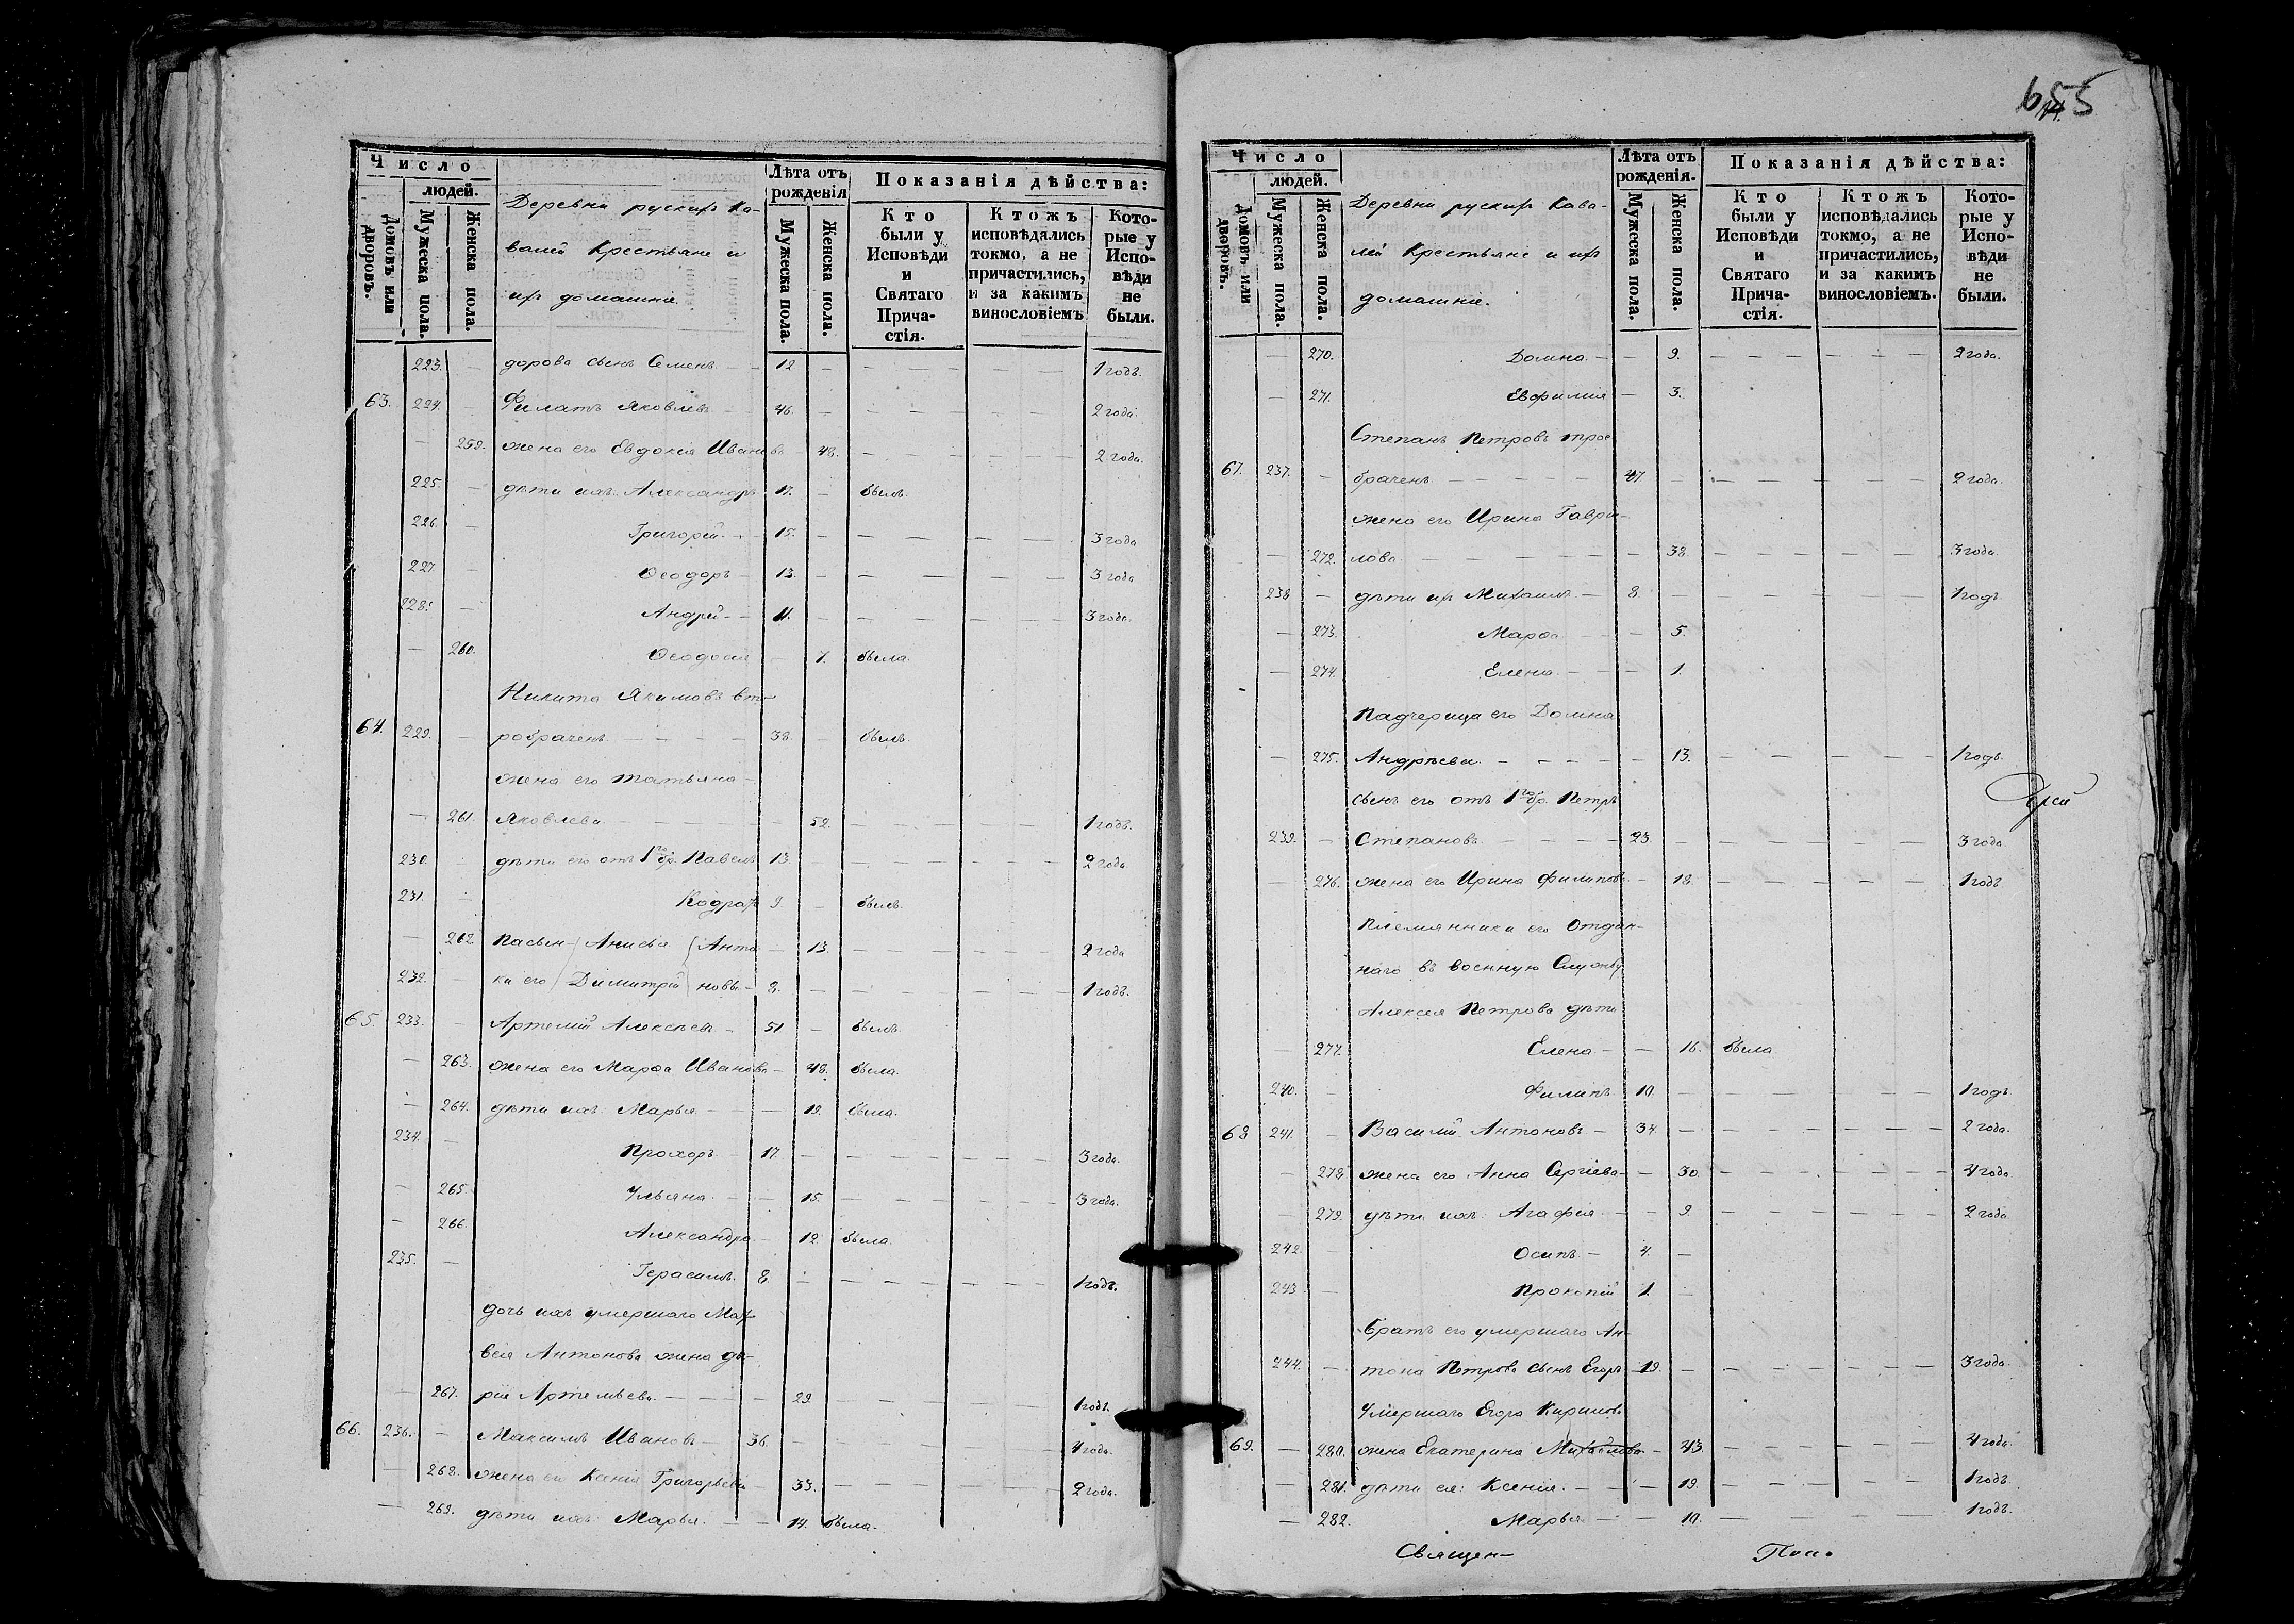 655
Число
людей.
Домовъ или дворовъ.
Мужеска пола.
Женска пола.
Деревни рускихъ Ка-
валей Крестьяне и
ихъ домашніе.
Лѣта отъ рожденія
Мужеска пола.
Женска пола.
Показанія дѣйства:
Кто были у Исповѣди и Святаго Прича-стія.
Ктожъ исповѣдались токмо, а не причастились, и за какимъ винословіемъ
Кото-рые у Испо-вѣди не были.
223. — дорова сынъ Семенъ — 12 — — — — — — 1 годъ.
63. 224. — Филатъ Яковлевъ — 46. — — — — — — 2 года.
— 259. жена его Евдокія Иванова — 48. — — — — — 2 года.
225. — дѣти ихъ: Александръ 17. — былъ.
226. — Григорій — 15. — — — — — 3 года
227 — Ѳеодоръ — 13. — — — — — 3 года
228. — Андрей — 11. — — — — — 3 года.
— 260. Ѳеодосія — 7. была.
Никита Якимовъ вто-
64. 229. — робраченъ — — — — 38. — былъ.
жена его Татьяна —
— 261. Яковлева — — — — — 52. — — — — — 1 годъ.
230. дѣти его отъ 1го бр. Павелъ 13. — — — — — — 2 года
231. Кодратъ 9. — былъ.
— 262 Пасын- Анисья Анто — 13 — — — — — 2 года
232. — ки его Димитрій новы — 8. — — — — — — 1 годъ.
65. 233. — Артемій Алексѣевъ — 51 — былъ.
— 263. жена его Марѳа Иванова — 48. была.
— 264. дѣти ихъ: Марья — — — 19. была.
234. — Прохоръ — 17. — — — — — — 3 года.
— 265. Ульяна — — 15. — — — — — 3 года.
— 266. Александра — 12. была.
235. — Герасимъ. 8. — — — — — — 1 годъ.
дочь ихъ умершаго Мат-
вея Антонова жена Да-
— 267. рія Артемьева — — — — 29. — — — — — 1 годъ.
66. 236. — Максимъ Ивановъ — 36. — — — — — — 4 года.
— 268. жена его Ксенія Григорьева — 33. — — — — — 2 года.
— 269. дѣти ихъ: Марья. — — 14. была.
Число
людей.
Домовъ или дворовъ.
Мужеска пола.
Женска пола.
Деревни рускихъ Кава-
лей Крестьяне и ихъ
домашніе.
Лѣта отъ рожденія.
Мужеска пола.
Женска пола.
Показанія дѣйства:
Кто были у Исповѣди и Святаго Прича-стія.
Ктожъ исповѣдались токмо, а не причастились, и за какимъ винословіемъ.
Кото-рые у Испо-вѣди не были.
— 270. Домна — — 9. — — — — — — 2 года.
— 271. Евфимія — 3.
Степанъ Петровъ трое
67. 237. — браченъ — — — — — 47. — — — — — — 2 года.
жена его Ирина Гаври-
— 272. лова — — — — — — 38. — — — — — 3 года.
238 — дѣти ихъ Михаилъ — 8. — — — — — 1 годъ
— 273. Марѳа — — 5.
— 274. Елена — — 1.
Падчерица его Домна
— 275. Андреева — — — — — 13. — — — — — — 1 годъ.
сынъ его отъ 1го бр. Петръ
239. — Степановъ — — — — 23. — — — — — — 3 года.
— 276. жена его Ирина Филипова — 18. — — — — — 1 годъ
Племянника его Отдан-
наго въ военную Службу
Алексея Петрова дѣти
— 277. Елена — — 16. была
240. — Филипъ 10. — — — — — — 1 годъ
68 241. — Василій Антоновъ — 34. — — — — — — — 2 года.
— 278 жена его Анна Сергіева — — 30. — — — — — — 4 года
— 279. дѣти ихъ: Агафія — — 9. — — — — — — 2 года.
242. — Осипъ — 4. —
243. — Прокопій 1. —
Братъ его умершаго Ан-
244. — тона Петрова сынъ Егоръ — 19. — — — — — — — 3 года.
Умершаго Егора
69. — 280. жена Екатерина Михайлова — 43. — — — — — — 4 года.
— 281. дѣти ея: Ксенія. — — — 19. — — — — — 1 годъ.
— 282. Марья — — 10. — — — — — 1 годъ.
Священ-